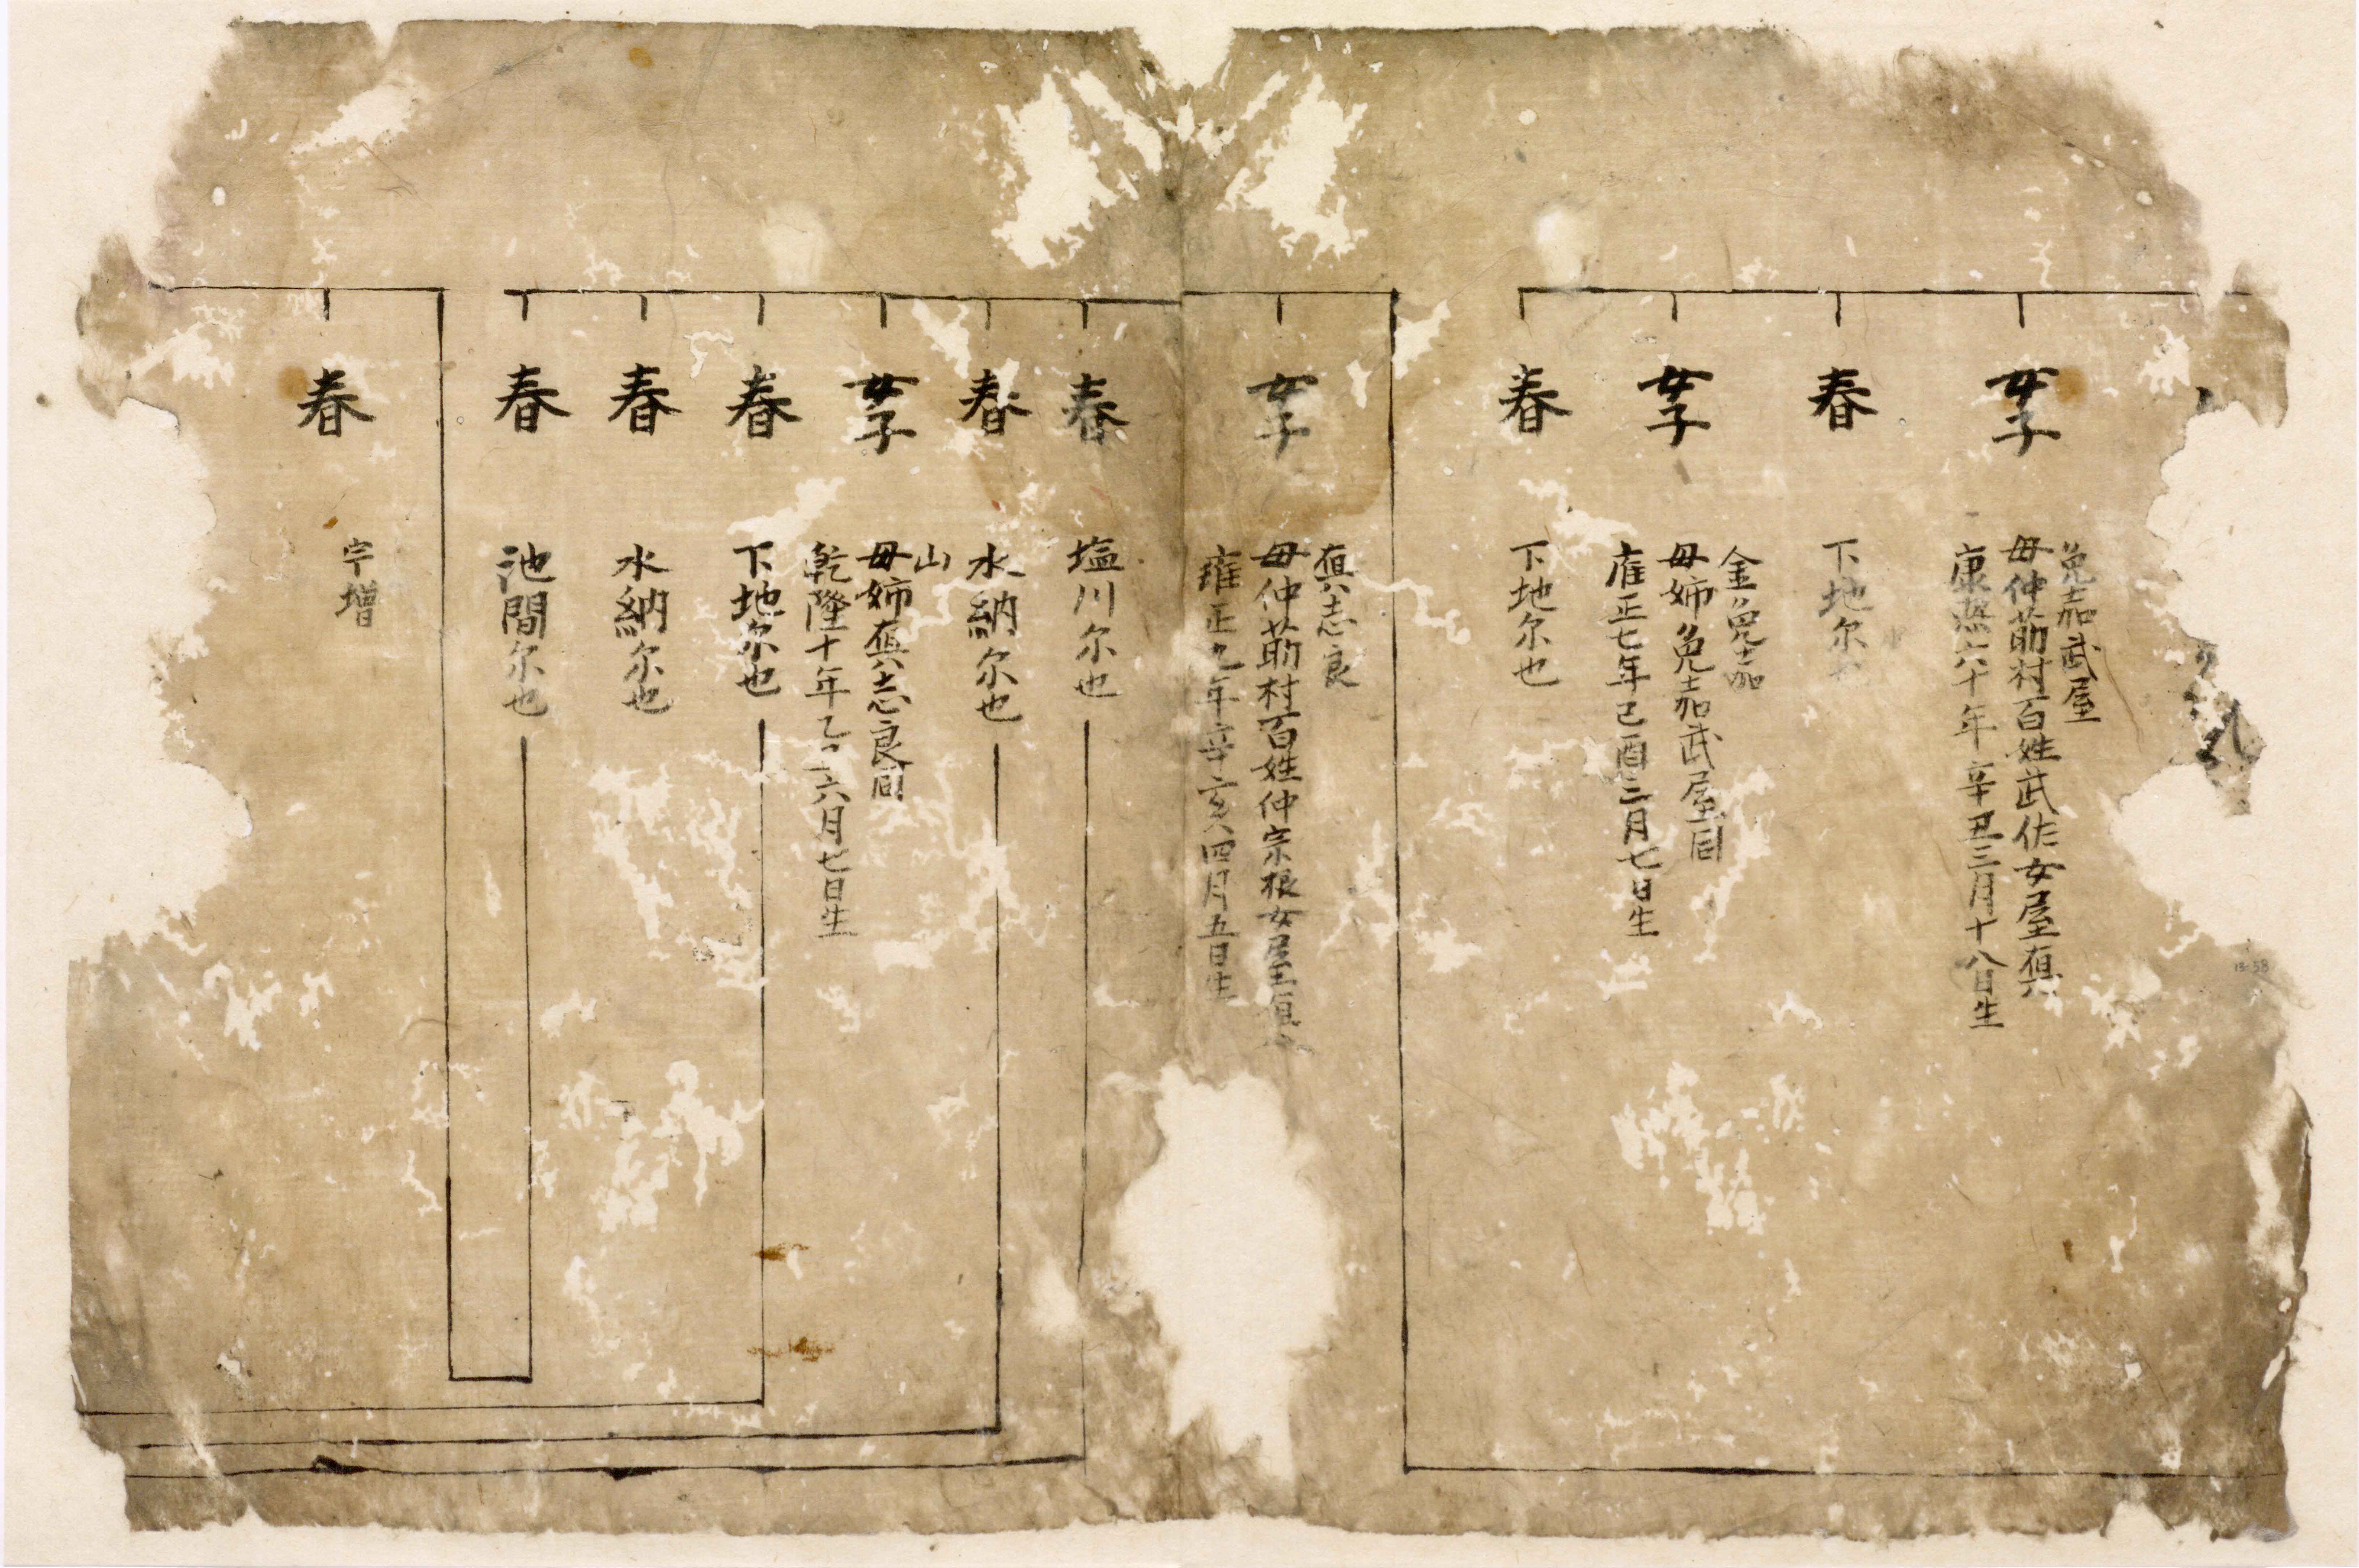 女子
免嘉武屋
母仲莇村百姓武佐女屋真
康熙六十年辛丑三月十八日生
春
下地尓也
女子
金免嘉
母姉免嘉武屋同
雍正七年己酉三月七日生
春
下地尓也
女子
真志良
母仲莇村百姓仲宗根女屋真
雍正九年辛亥四月五日生
春
塩川尓也
春
水納尓也
女子
山
母姉真志良同
乾隆十年乙 六月七日生
春
下地尓也
春
水納尓也
春
池間尓也
春
宇増